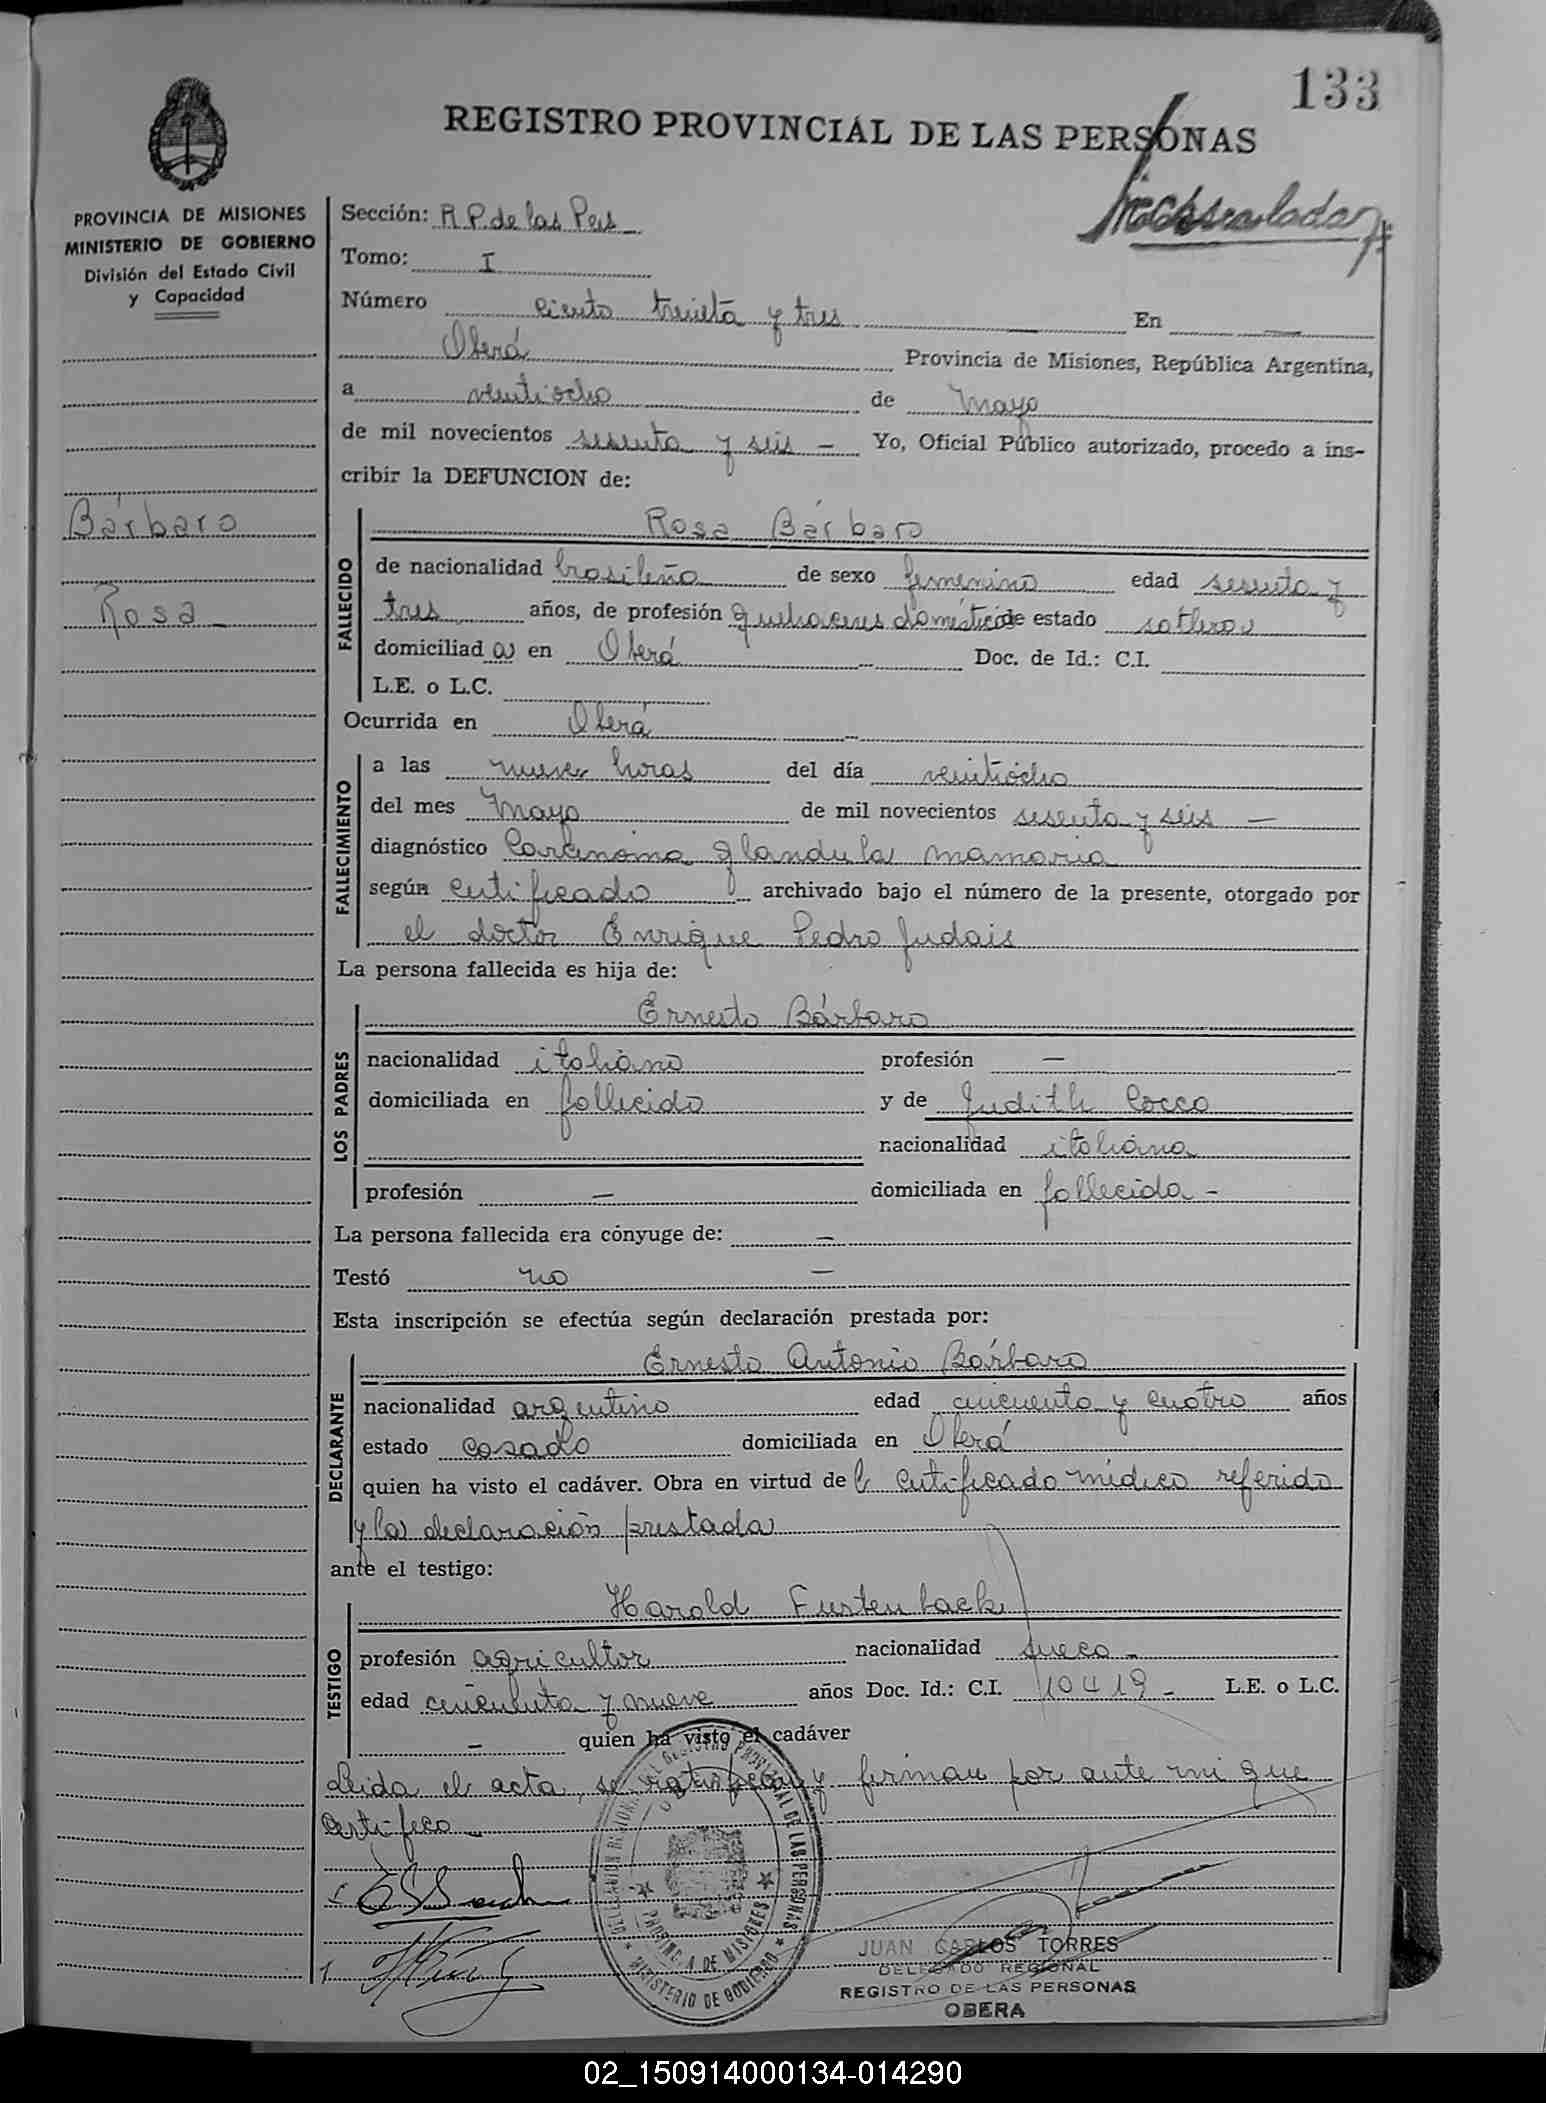 133
REGISTRO PROVINCIAL DE LAS PERSONAS
PROVINCIA DE MISIONES
MINISTERIO DE GOBIERNO
División del Estado Civil
y Capacidad
Bárbaro
Rosa
Sección: R.P. de las Pers
Tomo: I
Número ciento treinta y tres En
Oberá Provincia de Misiones, República Argentina,
a veintiocho de Mayo
de mil novecientos sesenta y seis - Yo, Oficial Público autorizado, procedo a ins-
cribir la DEFUNCION de:
FALLECIDO
Rosa Bárbaro
de nacionalidad brasileña de sexo femenino edad sesenta y
tres años, de profesión quehaceres domésticos de estado soltera
domiciliad a en Oberá Doc. de Id.: C.I.
L.E. o L.C.
Ocurrida en Oberá
FALLECIMIENTO
a las nueve horas del día veintiocho
del mes Mayo de mil novecientos sesenta y seis -
diagnóstico Carcinoma glandula mamaria
según certificado archivado bajo el número de la presente, otorgado por
el doctor Enrique Pedro Judais
La persona fallecida es hija de:
LOS PADRES
Ernesto Bárbaro
nacionalidad italiano profesión -
domiciliada en fallecido y de Judith Cocco
nacionalidad italiana
profesión - domiciliada en fallecida -
La persona fallecida era cónyuge de: -
Testó no -
Esta inscripción se efectúa según declaración prestada por:
DECLARANTE
Ernesto Antonio Bárbaro
nacionalidad argentino edad cincuenta y cuatro años
estado casado domiciliada en Oberá
quien ha visto el cadáver. Obra en virtud de l certificado médico referido
y la declaración prestada
ante el testigo:
TESTIGO
Harold Furstenback
profesión agricultor nacionalidad sueco -
edad cincuenta y nueve años Doc. Id.: C.I. 10419 - L.E. o L.C.
- quien ha visto el cadáver
Leida el acta, se ratifican y firman por ante mi que
certifico -
DELEGACION REGIONAL DEL REGISTRO PROVINCIAL DE LAS PERSONAS
PROVINCIA DE MISIONES
MINISTERIO DE GOBIERNO
JUAN CARLOS TORRES
DELEGADO REGIONAL
REGISTRO DE LAS PERSONAS
OBERA
02_150914000134-014290